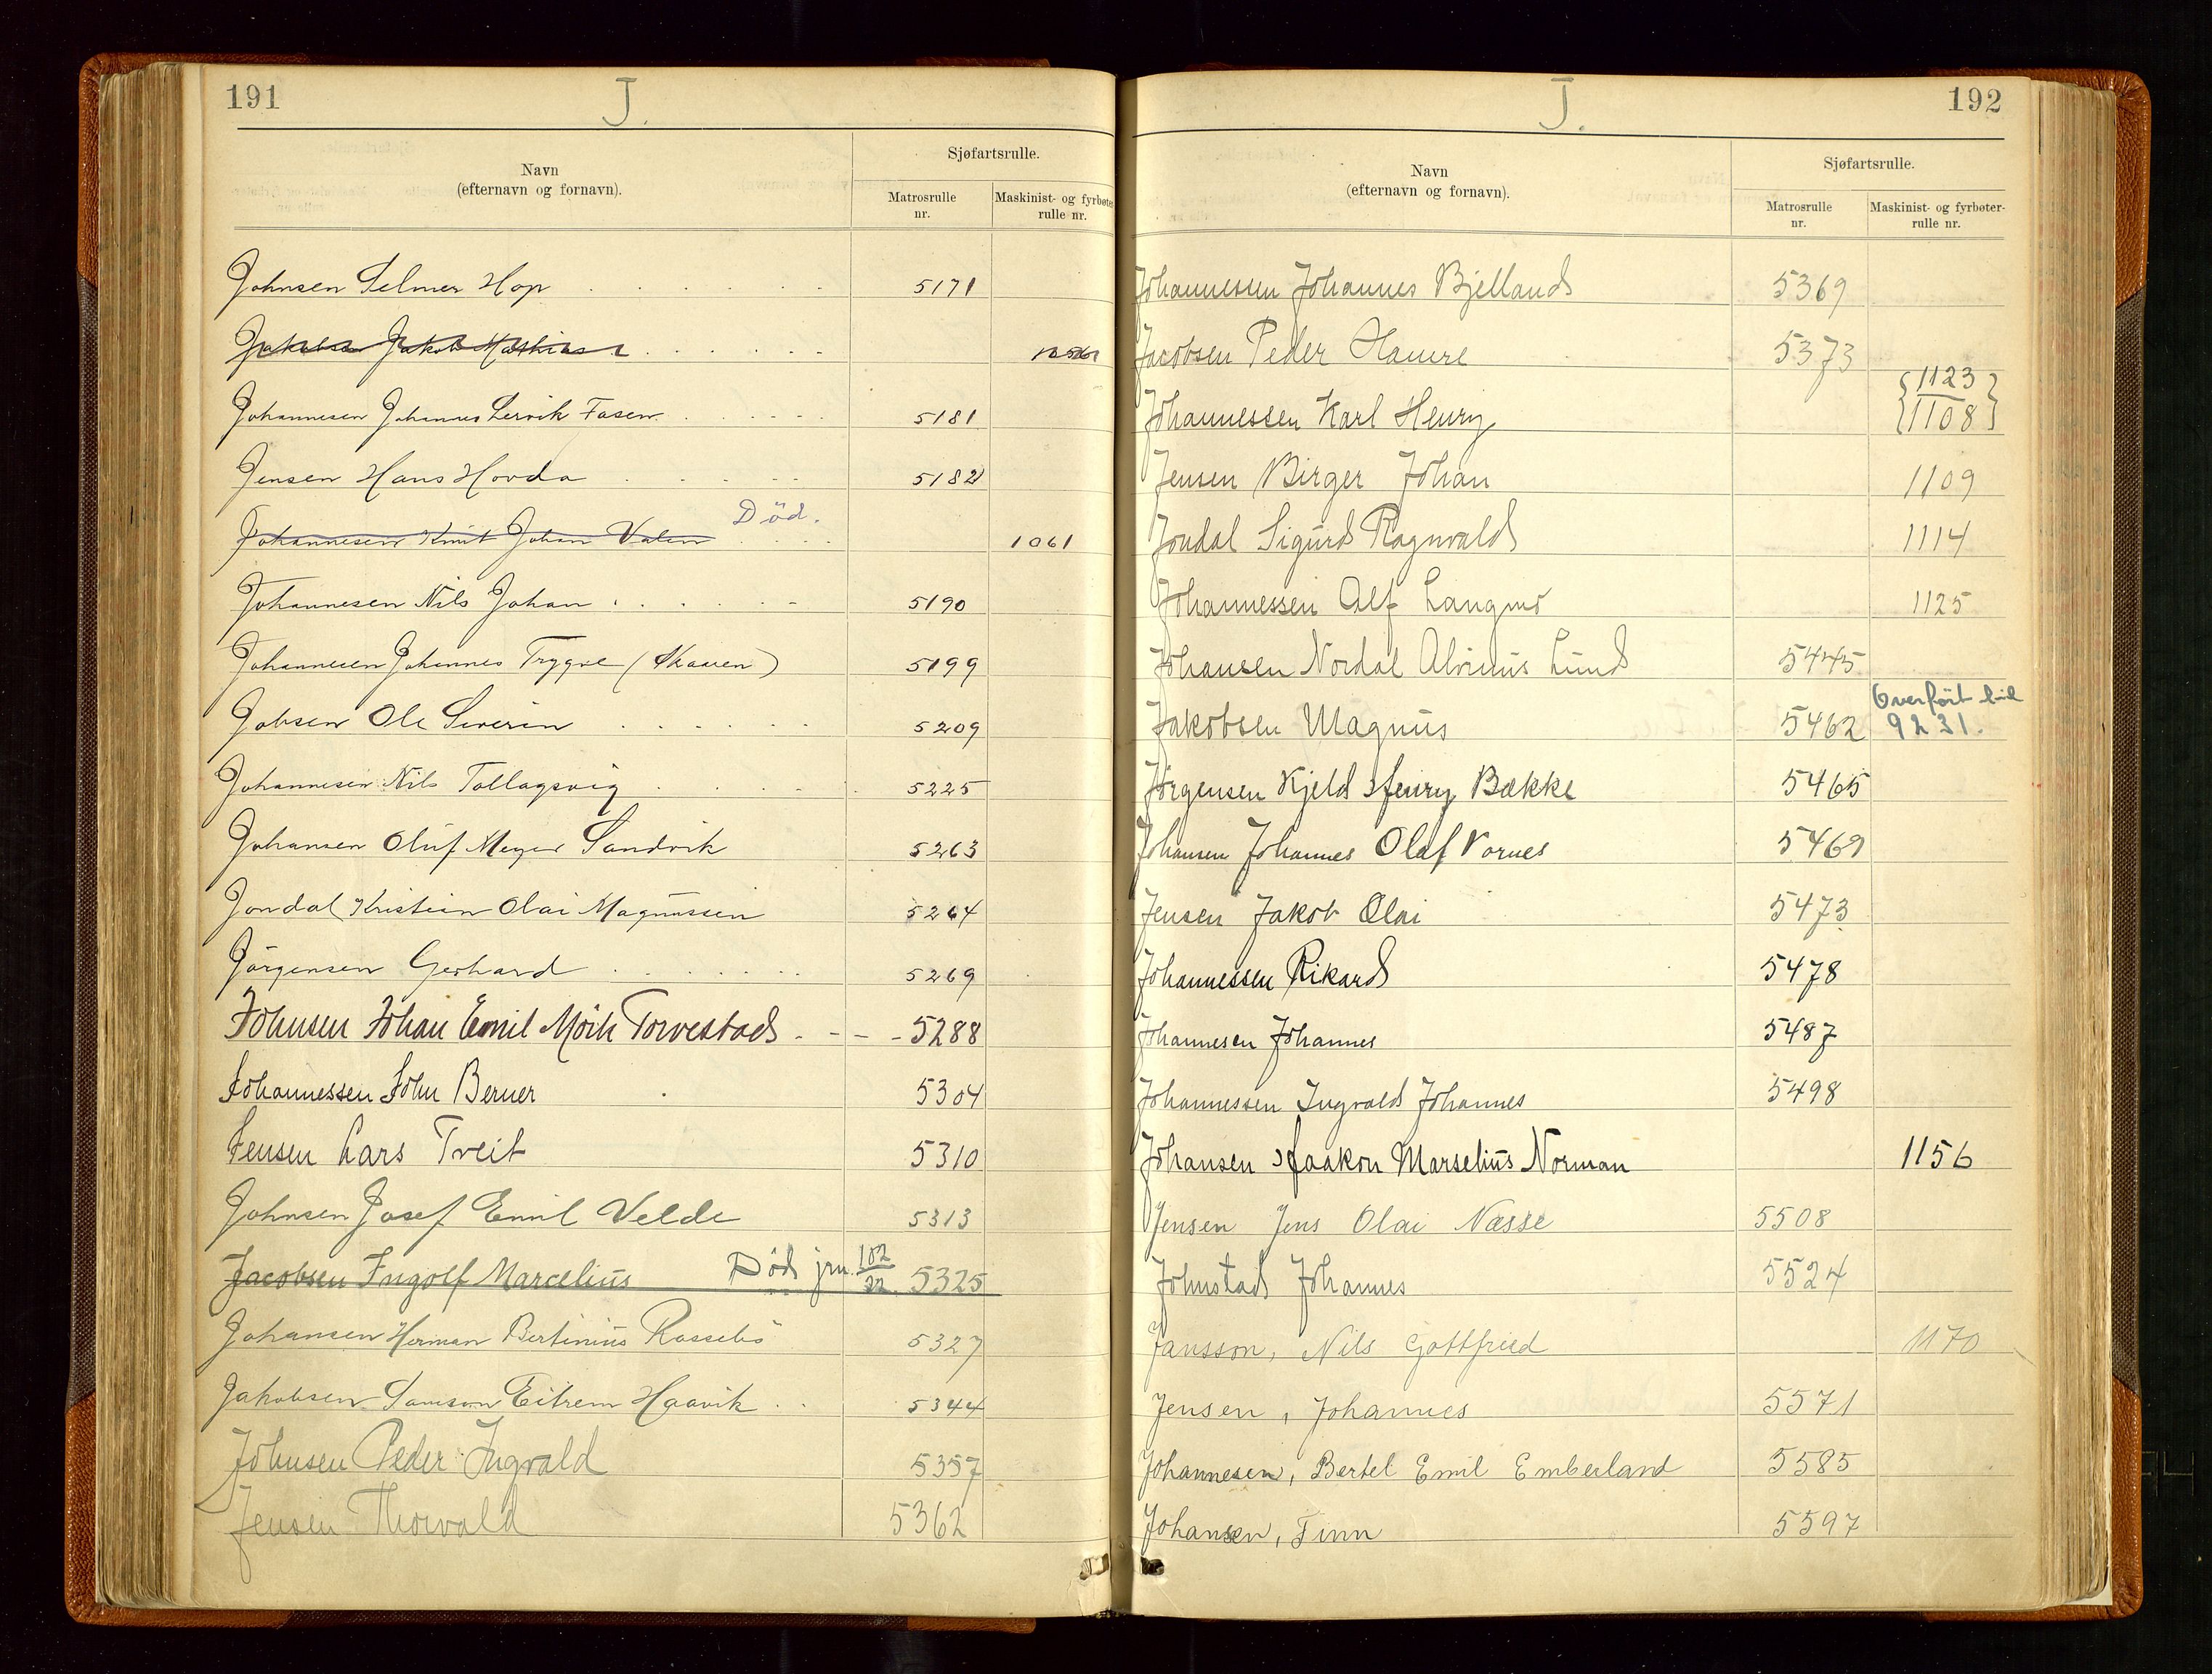 191
J.
Navn
(efternavn og fornavn).
Sjøfartsrulle.
Matrosrulle
nr.
Maskinist- og fyrbøter
rulle nr.
Johnsen Selmer Hop 5171
Jakobsen Jakob Mathias
Johannesen Johannes Lervik Fosen 5181
Jensen Hans Hovda 5182
Johannesen Knut Johan Valen Død. 1061
Johannesen Nils Johan 5190
Johannesen Johannes Trygve (Skaaren) 5199
Jobsen Ole Severin 5209
Johannesen Nils Tollagsvig 5225
Johansen Oluf Meyer Sandvik 5263
Jondal Kristian Olai Magnussen 5264
Jørgensen Gerhard 5269
Johnsen Johan Emil Torvestad 5288
Johannessen John Berner 5304
Jensen Lars Treit 5310
Johnsen Josef Emil Velde 5313
Jacobsen Ingolf Marcelius Død jrn. 102/22 5325
Johansen Herman Bertinius Rossebø 5327
Jakobsen Samson Eitrem Haavik 5344
Johnsen Peder Ingvald 5357
Jensen Thorvald 5362
J.
192
Navn
(efternavn og fornavn).
Sjøfartsrulle.
Matrosrulle
nr.
Maskinist- og fyrbøter-
rulle nr.
Johannessen Johannes Bjelland 5369
Jacobsen Peder Hamre 5373
Johannessen Karl Henry {1123 1108}
Jensen Birger Johan 1109
Jondal Sigurd Ragnvald 1114
Johannessen Alf Langmo 1125
Johansen Nordal Alvinus Lund 5445
Jakobsen Magnus 5462 Overført til 9231.
Jørgensen Kjeld Henry Bække 5465
Johansen Johannes Olaf Vornes 5469
Jensen Jakob Olai 5473
Johannessen Rikard 5478
Johannesen Johannes 5487
Johannessen Ingvald Johannes 5498
Johansen Haakon Marselius Norman 1156
Jensen Jens Olai Næsse 5508
Johnstad Johannes 5524
Jansson, Nils Gottfried 1170
Jensen, Johannes 5571
Johannesen, Bertel Emil Emberland 5585
Johansen, Finn 5597